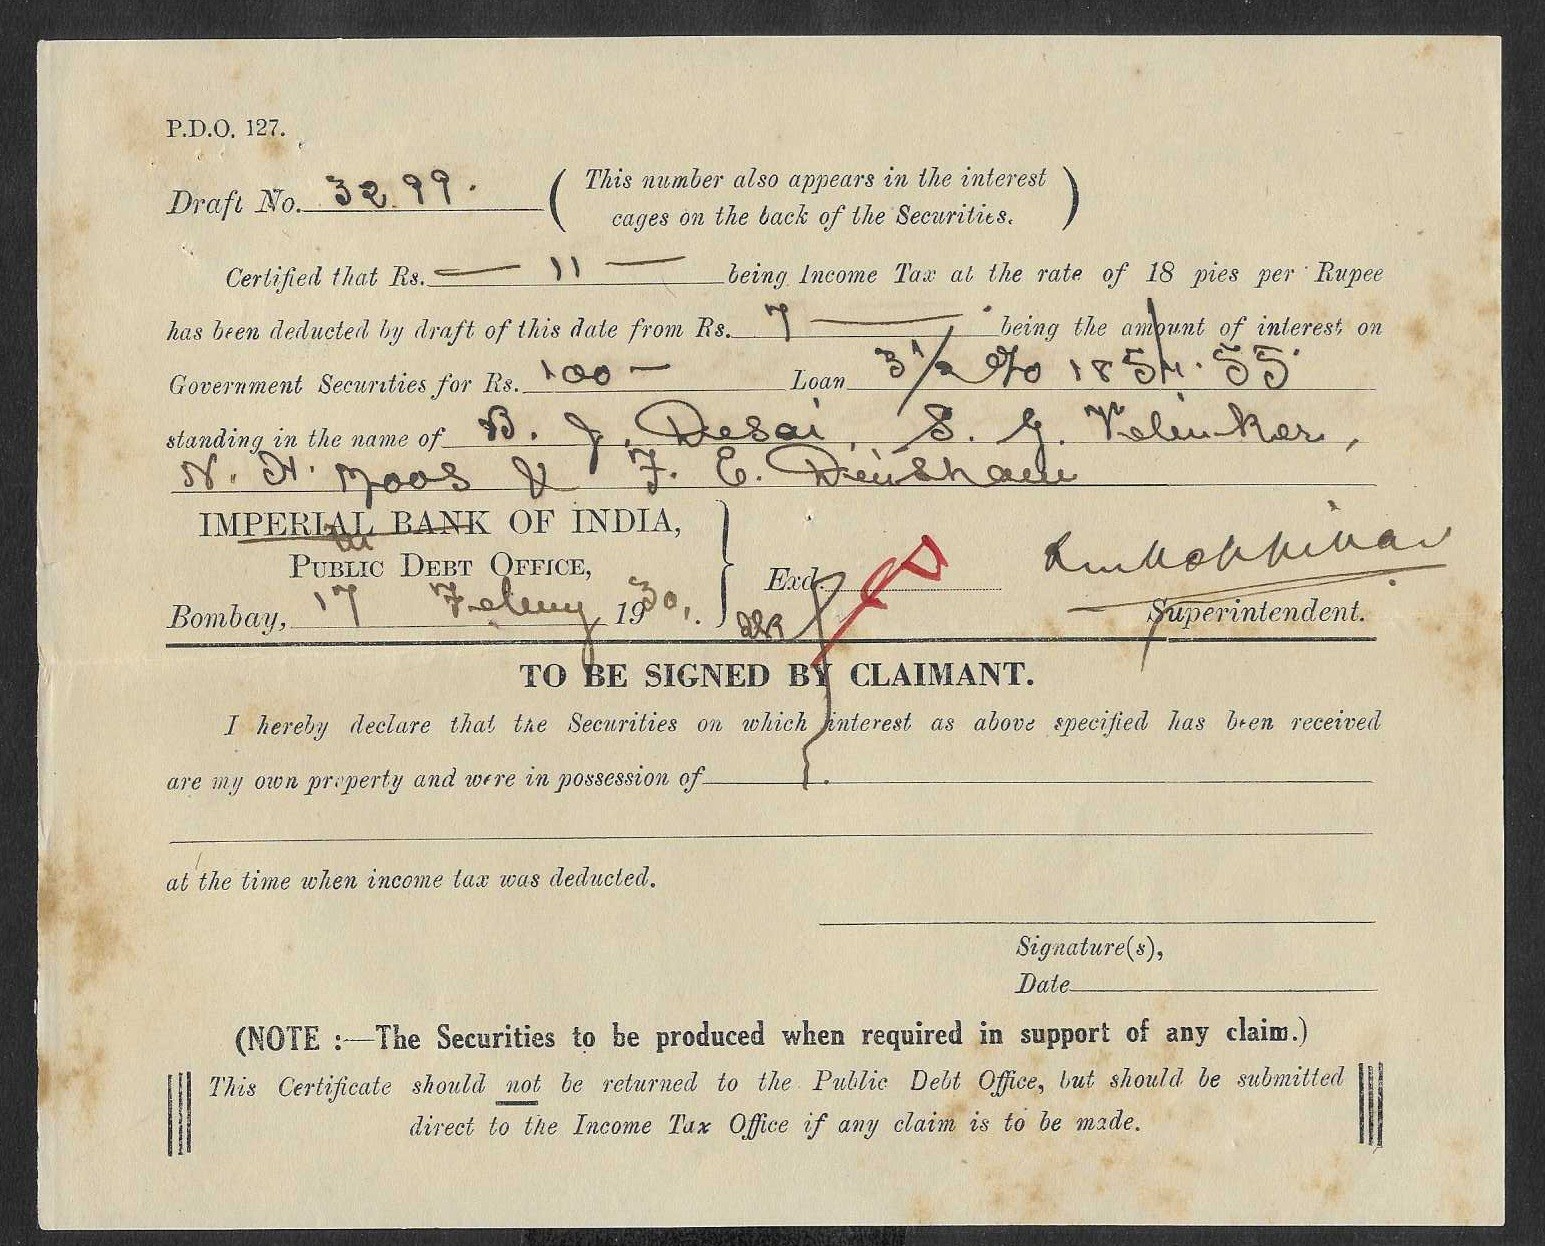 P.D.O. 127.
Draft No. 3299. ( This number also appears in the interest
cages on the back of the Securities. )
Certified that Rs. — 11 — being Income Tax at the rate of 18 pies per Rupee
has been deducted by draft of this date from Rs. 7 — being the amount of interest on
Government Securities for Rs. 100 — Loan 3 1/2 % 1854.55
standing in the name of B. J. Desai, S. G. Velinker,
N. H. Moos & F. E. Dinshaw
IMPERIAL BANK OF INDIA,
PUBLIC DEBT OFFICE,
Exd.
Bombay, 17 1930.
Superintendent.
TO BE SIGNED BY CLAIMANT.
I hereby declare that the Securities on which interest as above specified has been received
are my own property and were in possession of
at the time when income tax was deducted.
Signature(s),
Date
(NOTE :—The Securities to be produced when required in support of any claim.)
This Certificate should not be returned to the Public Debt Office, but should be submitted
direct to the Income Tax Office if any claim is to be made.